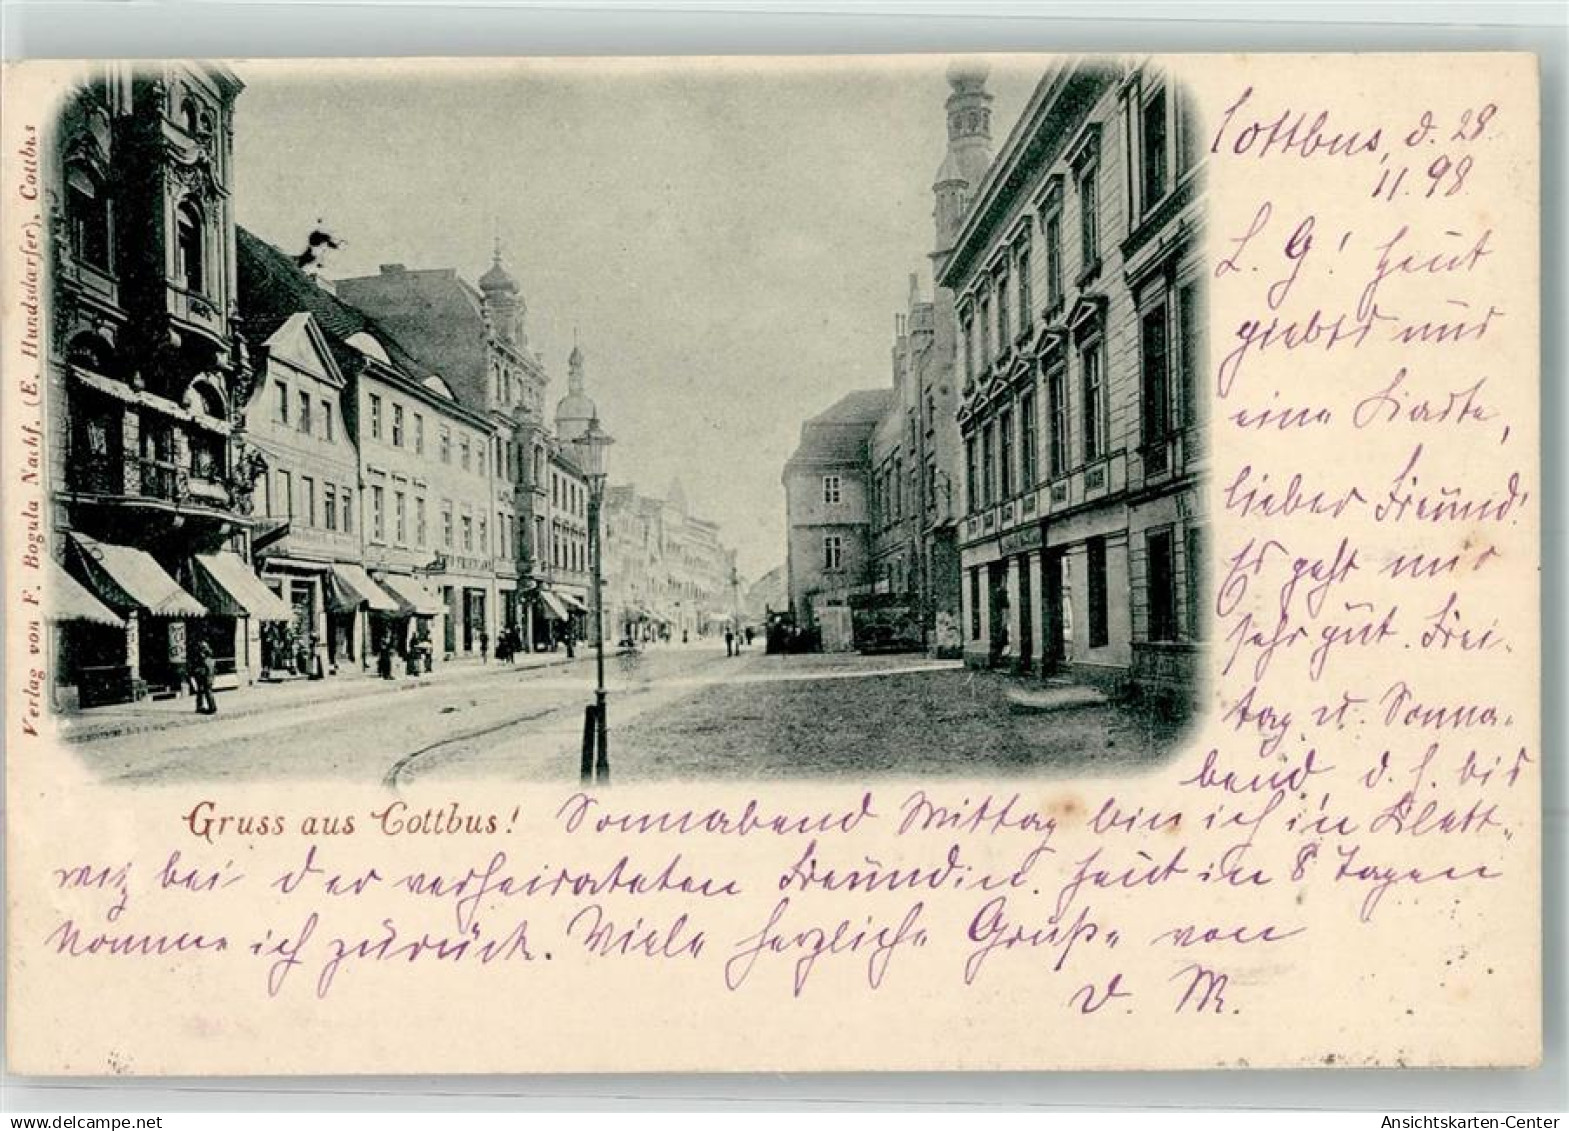 Verlag von F. Bogula Nachf. (E. Hundsdœrfer), Cottbus
Cottbus, d. 28.
11. 98.
L. G.! Heut
giebts nur
eine Karte,
lieber Freund!
Es geht mir
sehr gut. Frei-
tag u. Sonna-
bend, d. h. bis
Gruss aus Cottbus! Sonnabend Mittag bin ich in Klett-
witz bei der verheirateten Freundin. Heut in 8 Tagen
komme ich zurück. Viele herzliche Grüße von
d. M.
www.oldthing.net
Ansichtskarten-Center